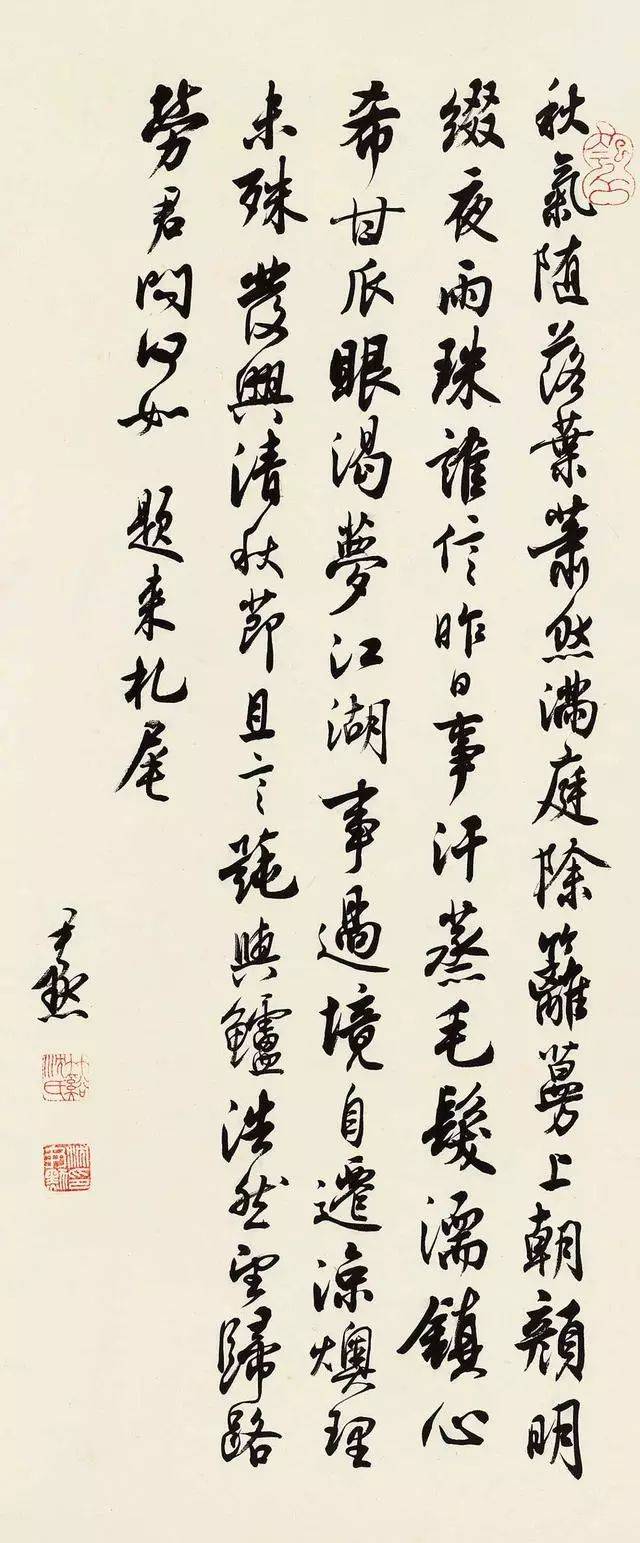 秋氣随落葉蕭然满庭除籬蔓上朝顏明
綴夜雨珠誰信昨日事汗蒸毛髮濡鎮心
希甘瓜眼渴夢江湖事過境自遷涼燠理
未殊發興清秋節且言蓴與鱸浩然望歸路
勞君問何如 題來札尾
尹默
竹谿沈氏